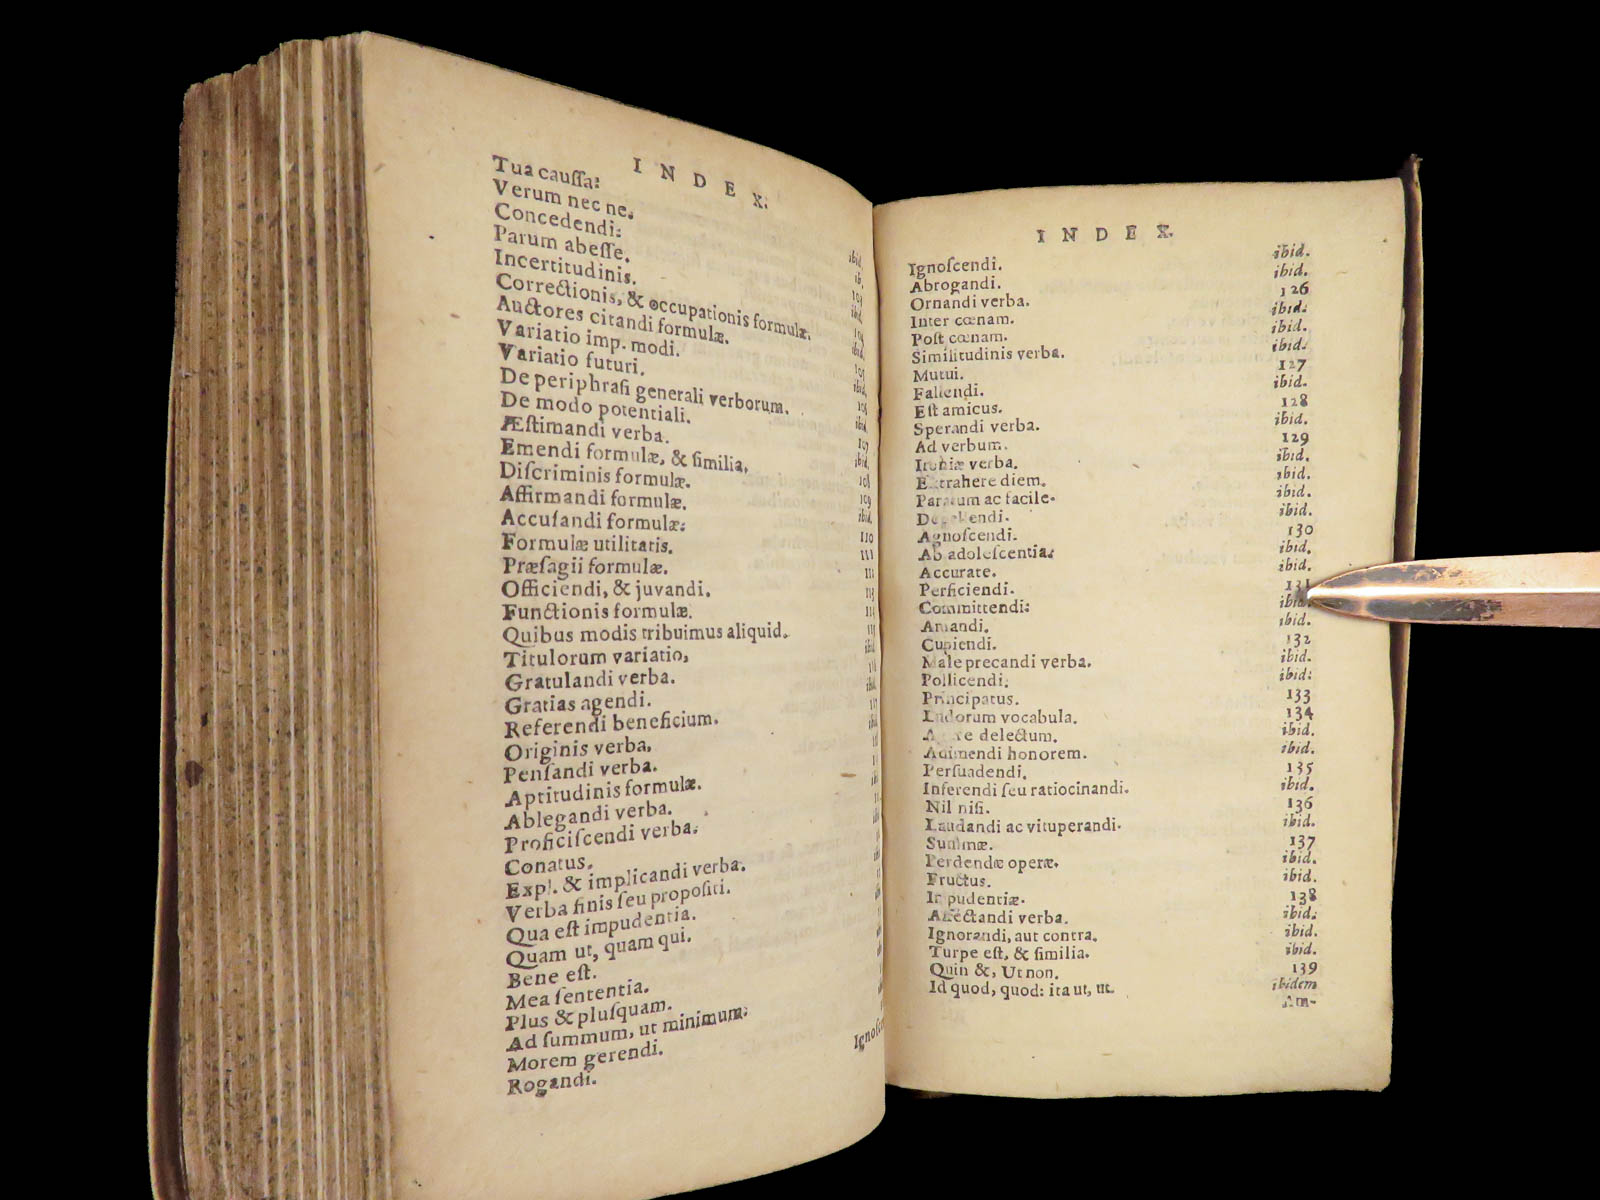 INDEX.
Tua cauſſa:
Verum nec ne.
Concedendi:
Parum abeſſe. ibid.
Incertitudinis. ib.
Correctionis, & occupationis formulæ. 103
Auctores citandi formulæ. ibid.
Variatio imp. modi. 104
Variatio futuri. ibid.
De periphraſi generali verborum. 105
De modo potentiali. ibid.
Æſtimandi verba. 106
Emendi formulæ, & ſimilia, ibid.
Diſcriminis formulæ. 107
Affirmandi formulæ. ibid.
Accuſandi formulæ: 108
Formulæ utilitatis. 109
Præſagii formulæ. ibid.
Officiendi, & juvandi. 110
Functionis formulæ. 111
Quibus modis tribuimus aliquid.
Titulorum variatio,
Gratulandi verba.
Gratias agendi.
Referendi beneficium.
Originis verba,
Penſandi verba.
Aptitudinis formulæ.
Ablegandi verba.
Proficiſcendi verba:
Conatus.
Expl. & implicandi verba.
Verba finis ſeu propoſiti.
Qua eſt impudentia.
Quam ut, quam qui.
Bene eſt.
Mea ſententia.
Plus & pluſquam.
Ad ſummum, ut minimum:
Morem gerendi.
Rogandi.
INDEX.
Ignoſcendi. ibid.
Abrogandi. ibid.
Ornandi verba. 126
Inter cœnam. ibid:
Poſt cœnam. ibid.
Similitudinis verba. ibid:
Mutui. 127
Fallendi. ibid.
Eſt amicus. 128
Sperandi verba. ibid.
Ad verbum. 129
Ironiæ verba. ibid.
Extrahere diem. ibid.
Paratum ac facile. ibid.
ibid.
Agnoſcendi. 130
Ab adoleſcentia: ibid.
Accurate. ibid.
Perficiendi. 131
Committendi: ibid.
Amandi. ibid.
Cupiendi. 132
Male precandi verba. ibid.
Pollicendi. ibid:
Principatus. 133
Ludorum vocabula. 134
delectum. ibid.
Adimendi honorem. ibid.
Perſuadendi. 135
Inferendi ſeu ratiocinandi. ibid.
Nil niſi. 136
Laudandi ac vituperandi. ibid.
Summæ. 137
Perdendæ operæ. ibid.
Fructus. ibid.
Impudentiæ. 138
Affectandi verba. ibid:
Ignorandi, aut contra. ibid.
Turpe eſt, & ſimilia. ibid.
Quin &, Ut non. 139
Id quod, quod: ita ut, ut. ibidem
Am-